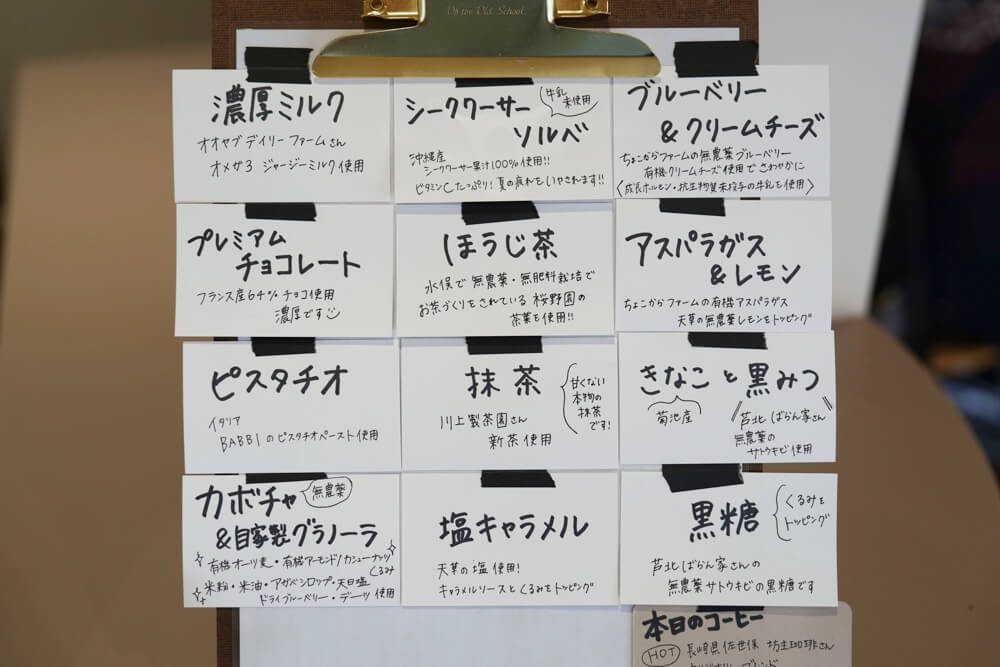 Of the Old School.
濃厚ミルク
オオヤブデイリーファームさん
オメガ3 ジャージーミルク使用
シークワーサー
ソルベ
牛乳
未使用
沖縄産
シークワーサー果汁100%使用!!
ビタミンCたっぷり!夏の疲れをいやされます!!
ブルーベリー
&クリームチーズ
ちょこからファームの無農薬ブルーベリー
有機クリームチーズ使用でさわやかに
〈成長ホルモン・抗生物質未投与の牛乳を使用〉
プレミアム
チョコレート
フランス産64%チョコ使用
濃厚です
ほうじ茶
水俣で無農薬・無肥料栽培で
お茶づくりをされている桜野園の
茶葉を使用!!
アスパラガス
&レモン
ちょこからファームの有機アスパラガス
天草の無農薬レモンをトッピング
ピスタチオ
イタリア
BABBIのピスタチオペースト使用
抹茶
川上製茶園さん
新茶使用
甘くない
本物の
抹茶
です!
きなこと黒みつ
菊池産
芦北ばらん家さん
無農薬の
サトウキビ使用
カボチャ
無農薬
&自家製グラノーラ
有機オーツ麦・有機アーモンド/カシューナッツ/
くるみ
米粉・米油・アガベシロップ・天日塩
ドライブルーベリー・デーツ使用
塩キャラメル
天草の塩使用!
キャラメルソースとくるみをトッピング
黒糖
くるみを
トッピング
芦北ばらん家さんの
無農薬サトウキビの黒糖です
本日のコーヒー
HOT
長崎県佐世保 坊主珈琲さん